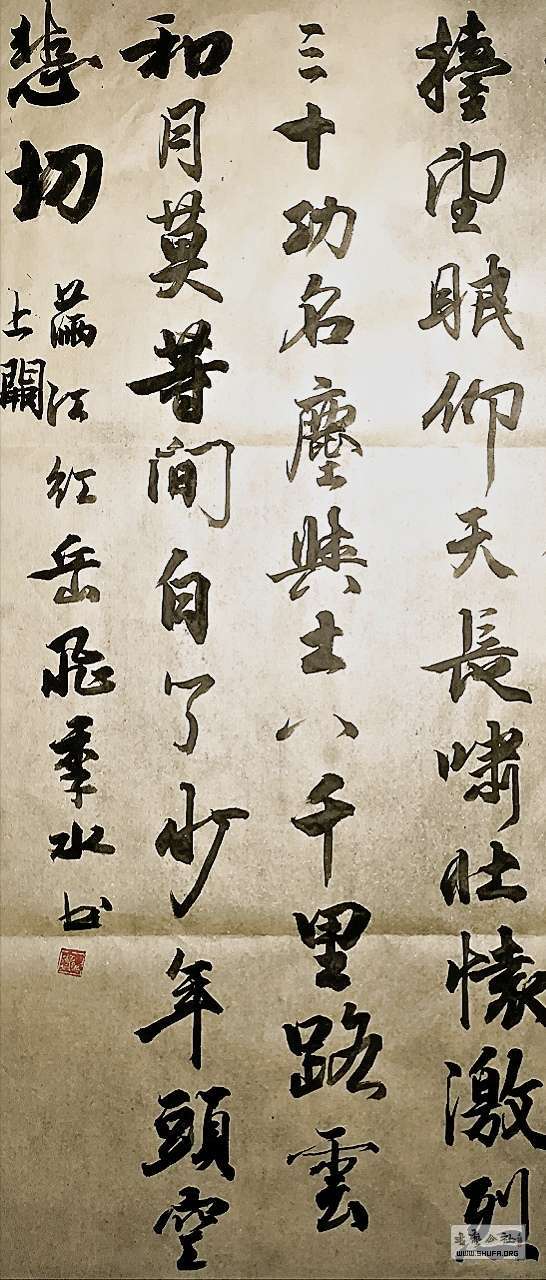 擡望眼仰天長嘯壯懷激烈
三十功名塵與土八千里路雲
和月莫等間白了少年頭空
悲切
滿江紅岳飛水书
上闋
书艺公社
WWW.SHUFA.ORG